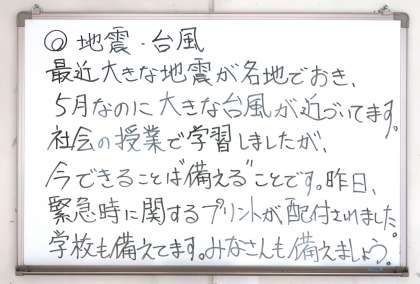 ◎地震・台風
最近大きな地震が各地でおき、
5月なのに大きな台風が近づいてます。
社会の授業で学習しましたが、
今できることは"備える"ことです。昨日、
緊急時に関するプリントが配付されました。
学校も備えてます。みなさんも備えましょう。